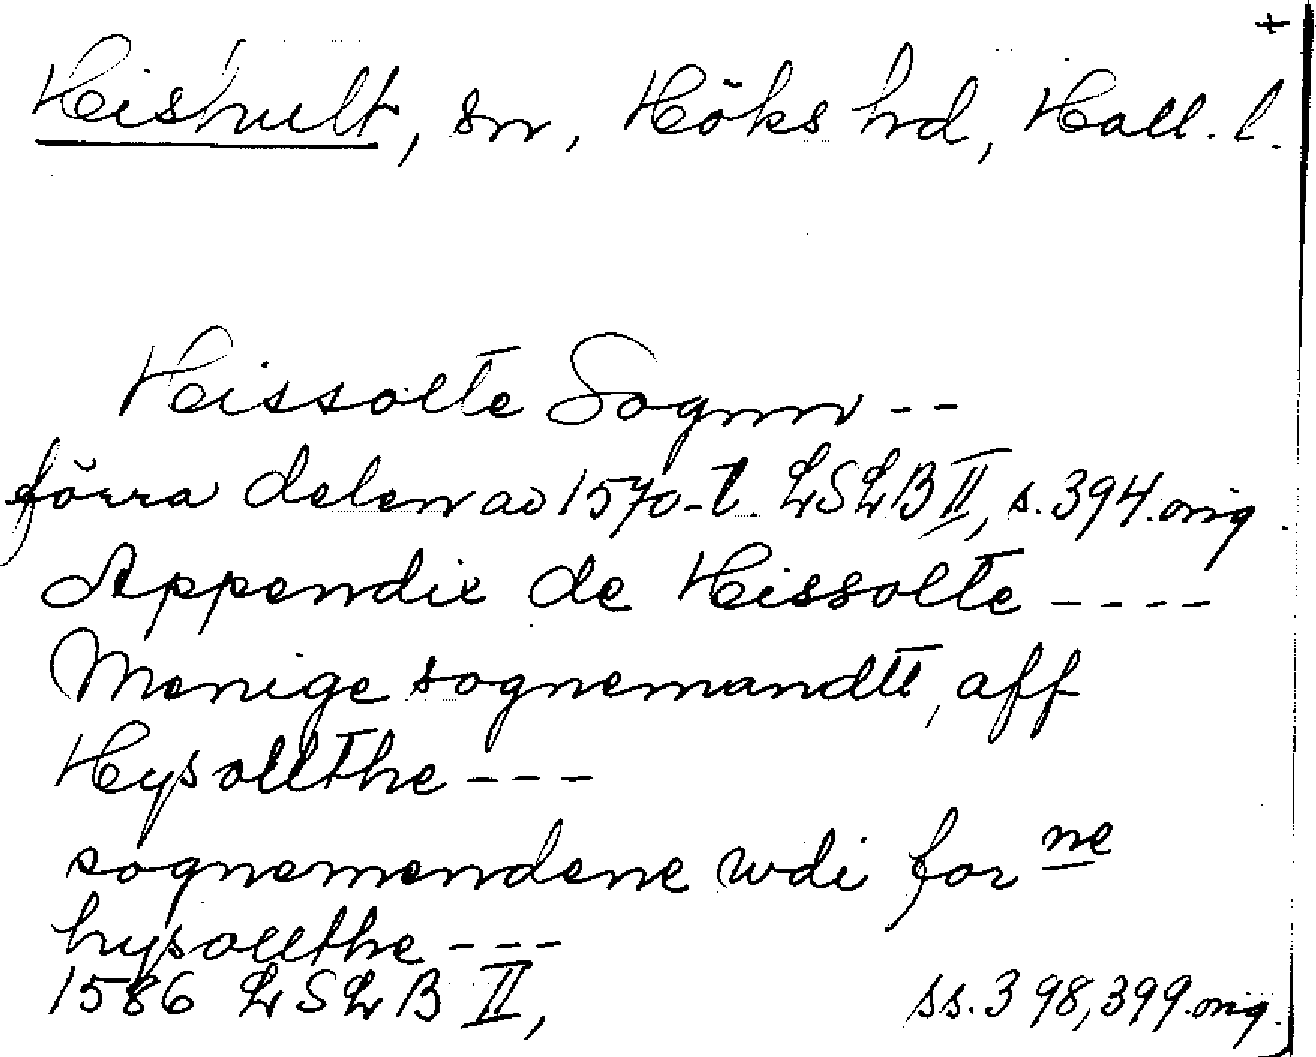 +
Hishult, sn, Höks hd, Hall. l.
Hissolte Sognn --
förra delen av 1570-t. LSLB II, s. 394. orig.
Appendix de Hissolte ----
Menige sognemandtt, aff
Hysollthe ---
sognemendene wdi for ne
hysollthe ---
1586 LSLB II, ss. 398, 399. orig.